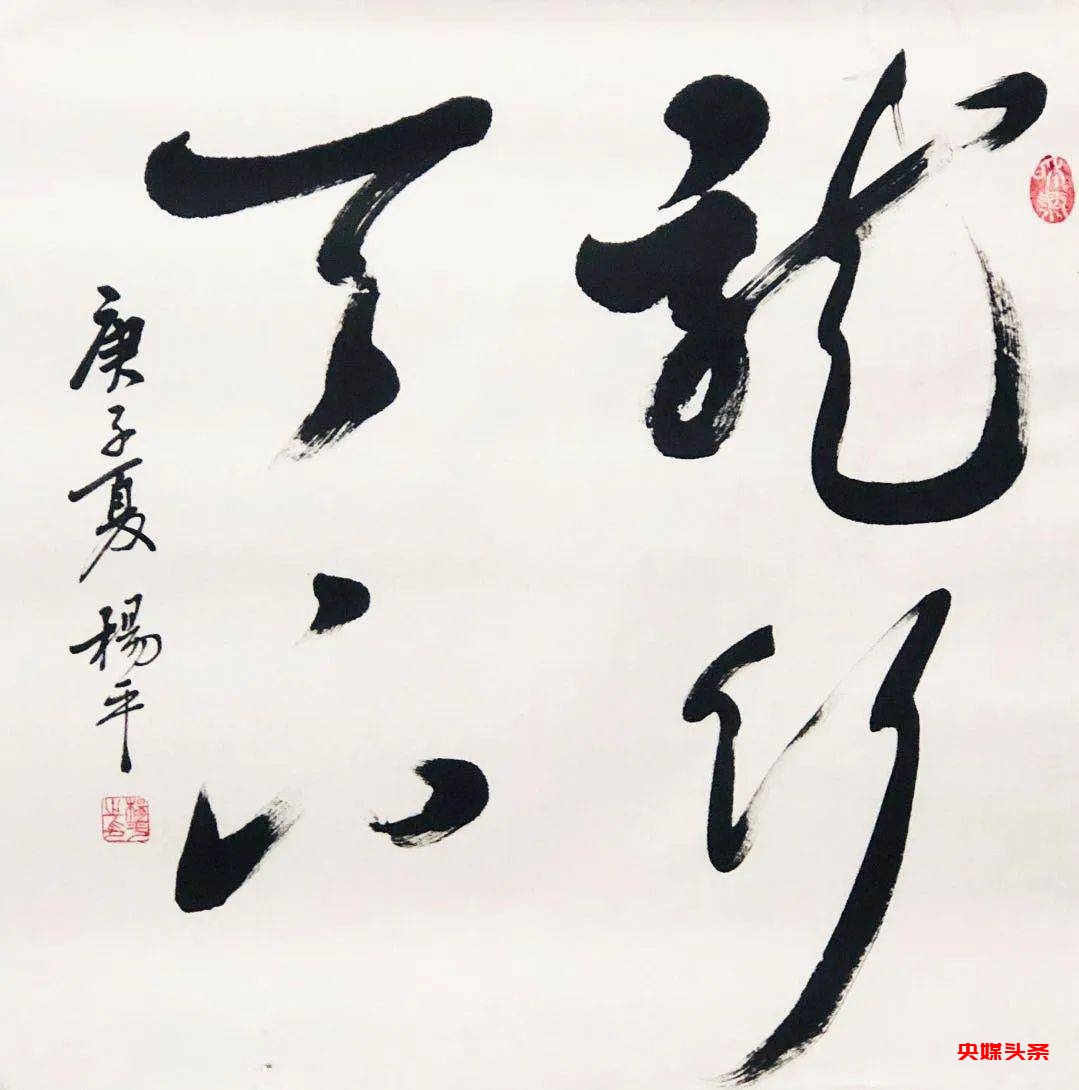 龍行
天下
庚子夏 楊平
央媒头条